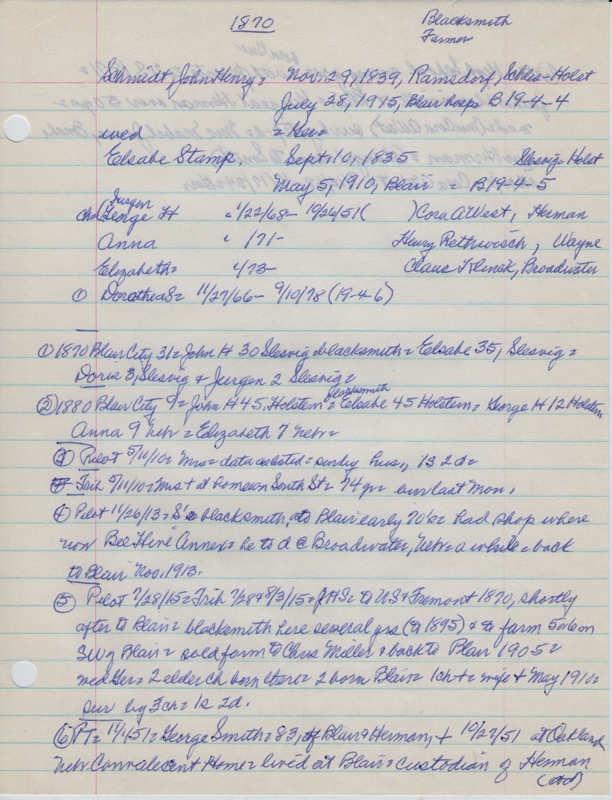 1870
Blacksmith
Farmer
Schmidt, John Henry = Nov. 29, 1839, Ramsdorf, Schles-Holst
July 28, 1915, Blair hosp B 19-4-4
wed = Ger =
Elsabe Stamp Sept. 10, 1835 Slesvig Holst
May 5, 1910, Blair = B19-4-5
Jurgen
ch (George H = 1/22/68 - 10/26/51 ( ) Cora A West, Herman
Anna " /71- Henry Rethwisch, Wayne
Elizabeth = "/73- Claus Klinck, Broadwater
① Dorothea S = 11/27/66 - 9/10/78 (19-4-6)
① 1870 Blair City 31 = John H 30 Slesvig blacksmith = Elsabe 35, Slesvig =
Doris 3, Slesvig & Jurgen 2 Slesvig =
② 1880 Blair City 9 = John H 45, Holstein = blacksmith = Elsabe 45 Holstein = George H 12 Holstein
Anna 9 Nebr = Elizabeth 7 Nebr =
③ Pilot 5/11/10 = Mrs = data = sur by hus., 1s 2d =
Trib 5/11/10 = Mrs + at home on South St = 74 yr = bur last Mon.
④ Pilot 11/26/13 = S's blacksmith, to Blair early 70's = had shop where
now Bee Hive Annex = he to d @ Broadwater, Nebr = a while = back
to Blair Nov. 1913.
⑤ Pilot 7/28/15 = Trib 7/28 & 8/3/15 = JHS = to US & Fremont 1870, shortly
after to Blair = blacksmith here several yrs (to 1895) & to farm 5 or 6 m
SW of Blair = sold farm to Chris Moller & back to Blair 1905 =
wed Ger = 2 elder ch born there = 2 born Blair = 1 ch + = wife + May 1910 =
sur by 3 ch = 1s 2d.
⑥ PT = 11/1/51 = George Smith = 83, of Blair & Herman, + 10/27/51 at Oakland,
Nebr. Convalecent Home = lived at Blair = custodian of Herman